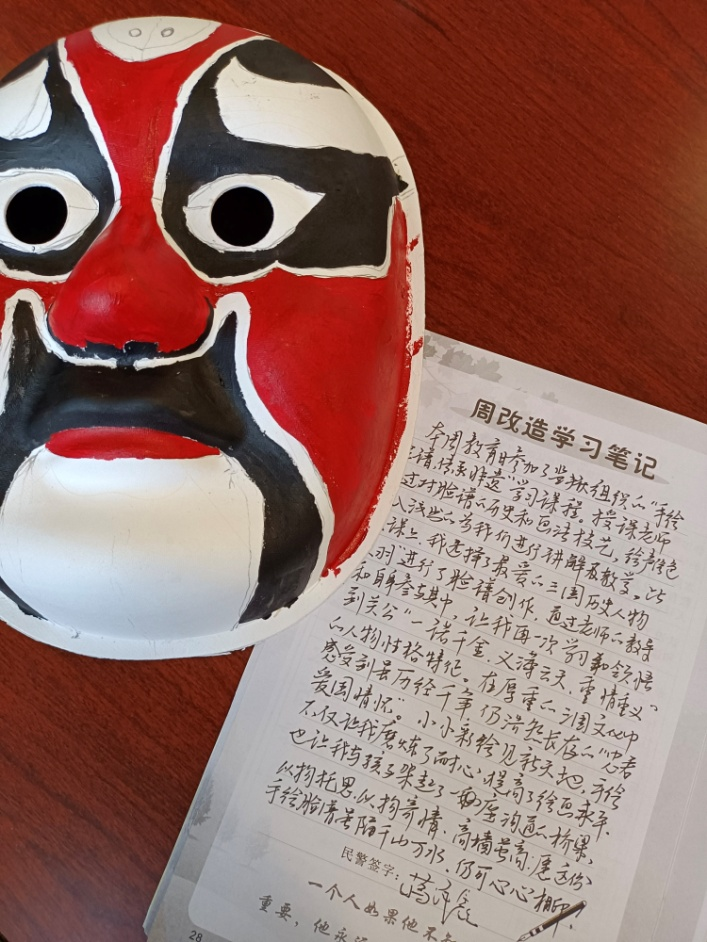 周改造学习笔记
本周教育时参加了监狱组织的“手绘
脸谱,传承非遗”学习课程。授课老师
过对脸谱的历史和画法技艺,绘声绘色
入浅出的为我们进行讲解及教学,
课上,我选择了最爱的三国历史人物
羽”进行了脸谱创作,通过老师的教导
和自身参与其中,让我再一次学习和领悟
到关公“一诺千金,义薄云天,重情重义”
的人物性格特征。在厚重的三国文化中
感受到虽历经千年,仍浩然长存的“忠君
爱国情怀”。小小彩绘见新天地,
不仅让我磨炼了耐心,提高了绘画水平,
也让我与孩子架起了一座沟通的桥梁,
以物托思,以物寄情,高墙虽高,
手绘脸谱虽隔千山万水,仍可心心相印!
民警签字:
一个人如果他不
重要,他永远
28